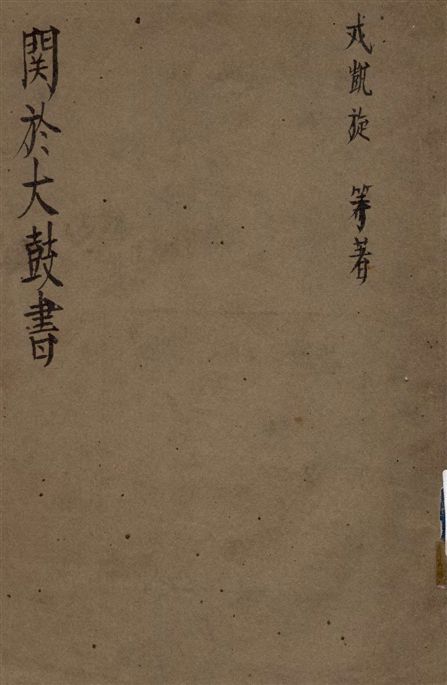 戎凱旋 等著
関於大鼓書